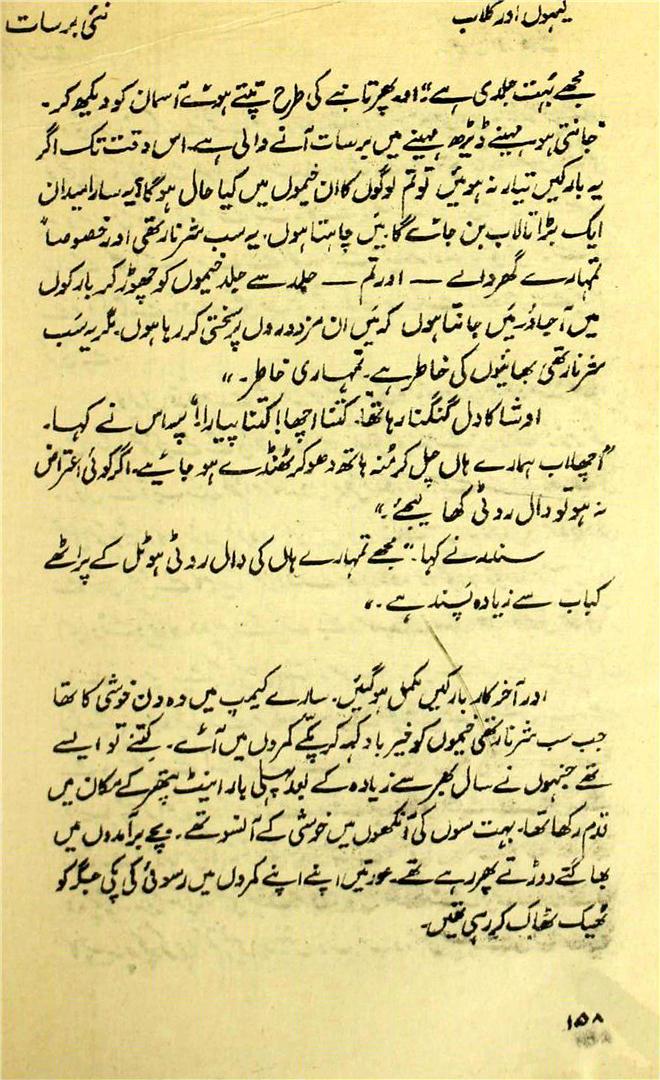 گیہوں اور گلاب
نئی برسات
مجھے بہت جلدی ہے“ اور پھر تانبے کی طرح تپتے ہوئے آسمان کو دیکھ کر۔
”جانتی ہو مہینے ڈیڑھ مہینے میں برسات آنے والی ہے۔ اس وقت تک اگر
یہ بارکیں تیار نہ ہوئیں تو تم لوگوں کا ان خیموں میں کیا حال ہوگا؟ یہ سارا میدان
ایک بڑا تالاب بن جائے گا۔ میں چاہتا ہوں۔ یہ سب شرنارتھی اور خصوصاً
تمہارے گھر والے — اور تم — جلد سے جلد خیموں کو چھوڑ کر بارکوں
میں آ جاؤ۔ میں جانتا ہوں کہ میں ان مزدوروں پر سختی کر رہا ہوں۔ مگر یہ سب
شرنارتھی بھائیوں کی خاطر ہے۔ تمہاری خاطر۔“
اوشا کا دل گنگنا رہا تھا۔ ”کتنا اچھا! کتنا پیارا!“ پھر اس نے کہا۔
”اچھا اب ہمارے ہاں چل کر منہ ہاتھ دھو کر ٹھنڈے ہو جائیے۔ اگر کوئی اعتراض
نہ ہو تو دال روٹی کھا لیجئے۔“
سندر نے کہا۔ ”مجھے تمہارے ہاں کی دال روٹی ہوٹل کے پراٹھے
کباب سے زیادہ پسند ہے۔“
اور آخرکار بارکیں مکمل ہو گئیں۔ سارے کیمپ میں وہ دن خوشی کا تھا
جب سب شرنارتھی خیموں کو خیرباد کہہ کر پکے کمروں میں آئے۔ کتنے تو ایسے
تھے جنہوں نے سال بھر سے زیادہ کے بعد پہلی بار اینٹ پتھر کے مکان میں
قدم رکھا تھا۔ بہت سوں کی آنکھوں میں خوشی کے آنسو تھے۔ بچے برآمدوں میں
بھاگتے دوڑتے پھر رہے تھے۔ عورتیں اپنے اپنے کمروں میں رسوئی کی پکی جگہ کو
ٹھیک ٹھاک کر رہی تھیں۔
۱۵۸